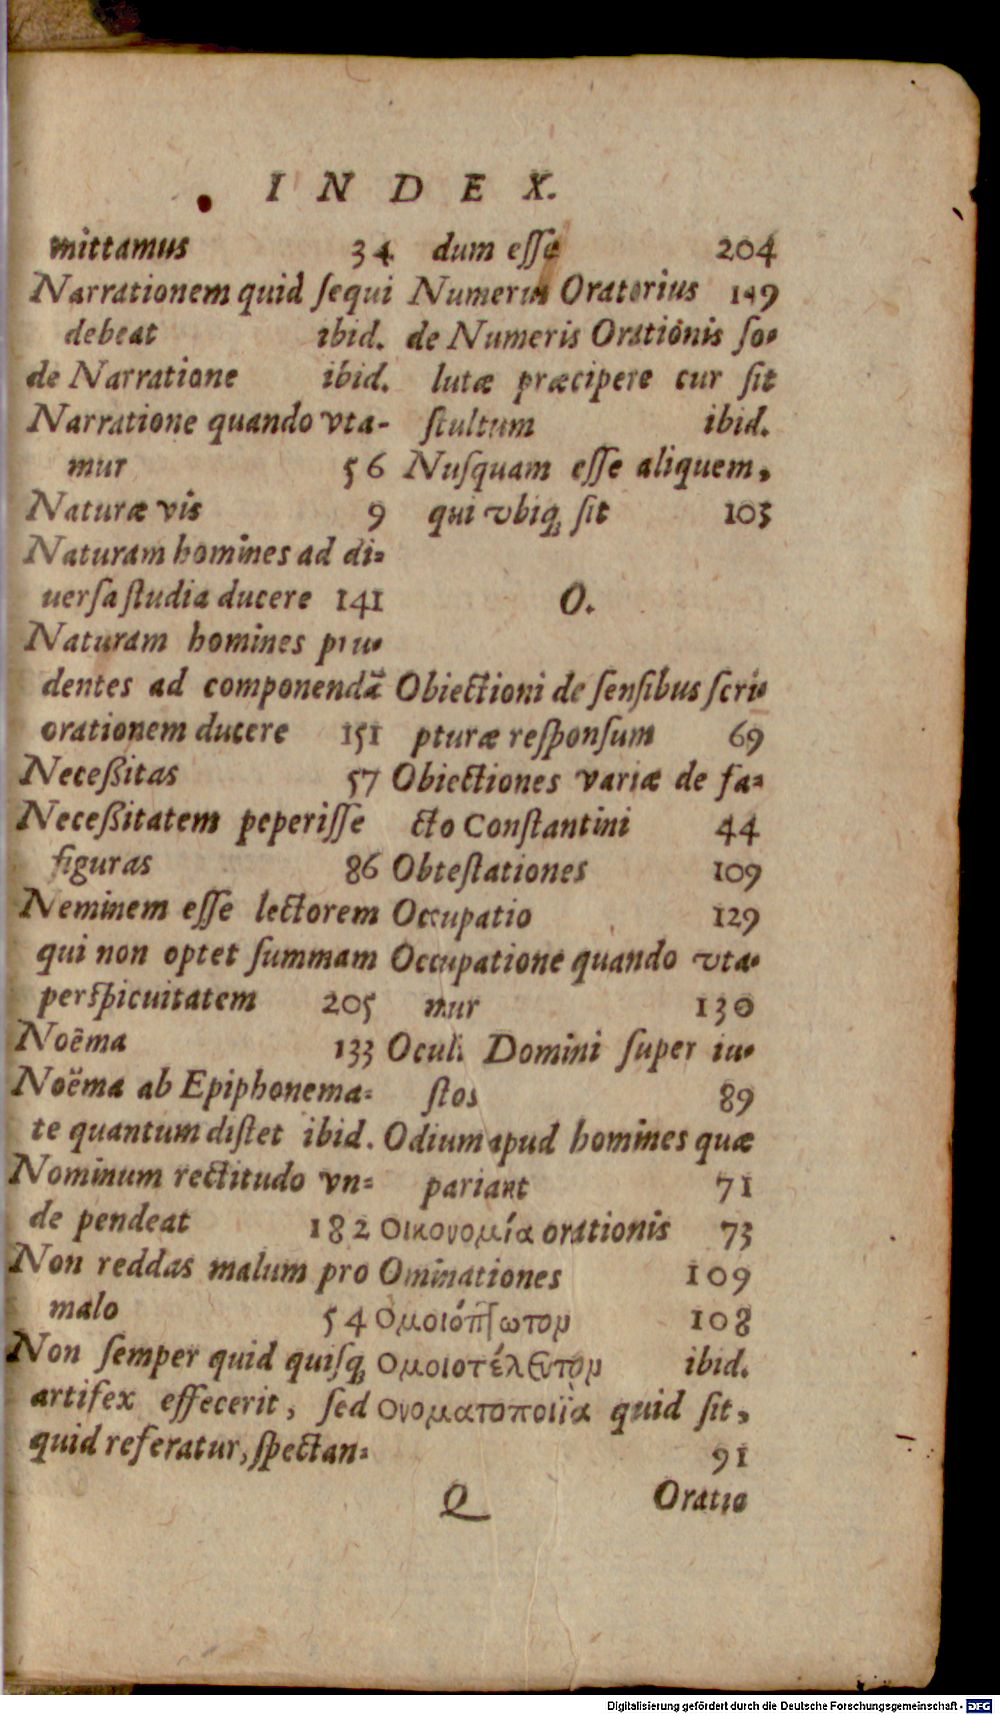 INDEX.
mittamus 34
Narrationem quid ſequi
debeat ibid.
de Narratione ibid.
Narratione quando vta-
mur 56
Naturæ vis 9
Naturam homines ad di-
uerſa ſtudia ducere 141
Naturam homines pru-
dentes ad componendā
orationem ducere 151
Neceßitas 57
Neceßitatem peperiſſe
figuras 86
Neminem eſſe lectorem
qui non optet ſummam
perſpicuitatem 205
Noëma 133
Noëma ab Epiphonema-
te quantum diſtet ibid.
Nominum rectitudo vn-
de pendeat 182
Non reddas malum pro
malo 54
Non ſemper quid quiſq;
artifex effecerit, ſed
quid referatur, ſpectan-
dum eſſe 204
Numerus Oratorius 149
de Numeris Orationis ſo-
lutæ præcipere cur ſit
ſtultum ibid.
Nuſquam eſſe aliquem,
qui vbiq; ſit 103
O.
Obiectioni de ſenſibus ſcri-
pturæ reſponſum 69
Obiectiones variæ de fa-
cto Conſtantini 44
Obteſtationes 109
Occupatio 129
Occupatione quando vta-
mur 130
Oculi Domini ſuper iu-
ſtos 89
Odium apud homines quæ
pariant 71
Οικονομία orationis 73
Ominationes 109
Ομοιόπτωτον 108
Ομοιοτέλευτον ibid.
Ονοματοποιΐα quid ſit,
91
Q Oratio
Digitalisierung gefördert durch die Deutsche Forschungsgemeinschaft - DFG